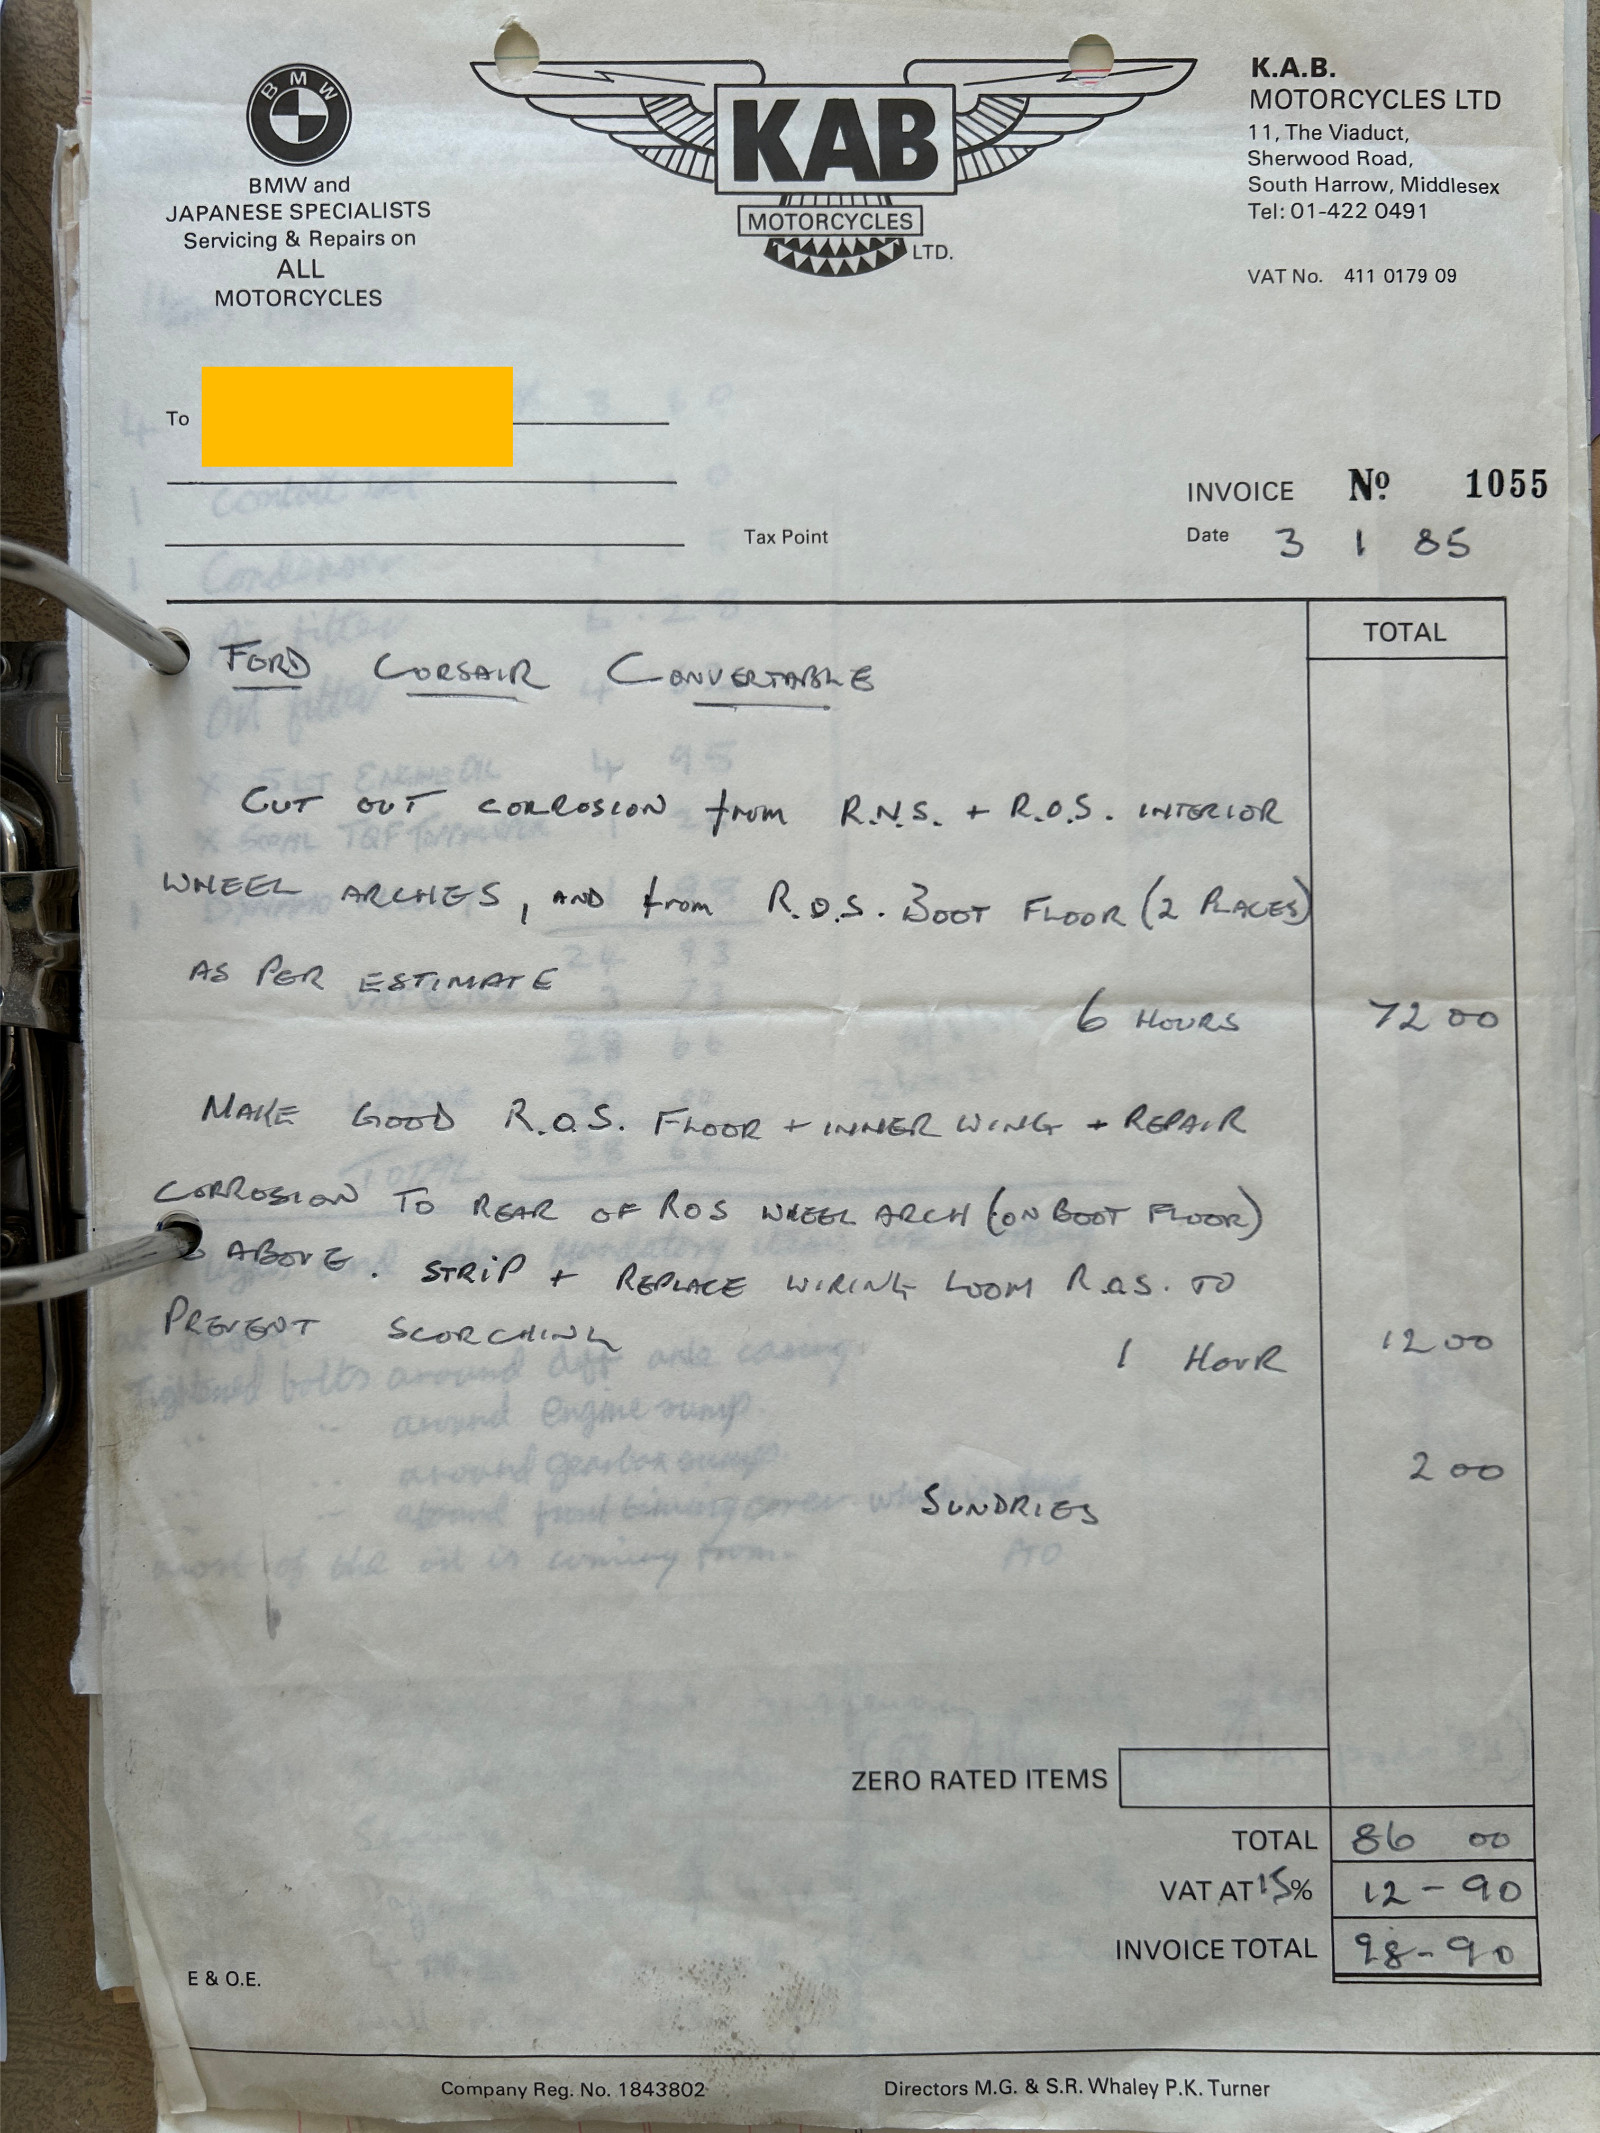 BMW
BMW and
JAPANESE SPECIALISTS
Servicing & Repairs on
ALL
MOTORCYCLES
KAB
MOTORCYCLES
LTD.
K.A.B.
MOTORCYCLES LTD
11, The Viaduct,
Sherwood Road,
South Harrow, Middlesex
Tel: 01-422 0491
VAT No. 411 0179 09
To
INVOICE Nº 1055
Tax Point
Date 3 1 85
TOTAL
FORD CORSAIR CONVERTABLE
CUT OUT CORROSION from R.N.S. + R.O.S. INTERIOR
WHEEL ARCHES, AND from R.O.S. BOOT FLOOR (2 PLACES)
AS PER ESTIMATE
6 HOURS 72 00
MAKE GOOD R.O.S. FLOOR + INNER WING + REPAIR
CORROSION TO REAR OF ROS WHEEL ARCH (ON BOOT FLOOR)
ABOVE. STRIP + REPLACE WIRING LOOM R.O.S. TO
PREVENT SCORCHING
1 HOUR 12 00
SUNDRIES 2 00
ZERO RATED ITEMS
TOTAL 86 00
VAT AT 15% 12-90
INVOICE TOTAL 98-90
E & O.E.
Company Reg. No. 1843802
Directors M.G. & S.R. Whaley P.K. Turner